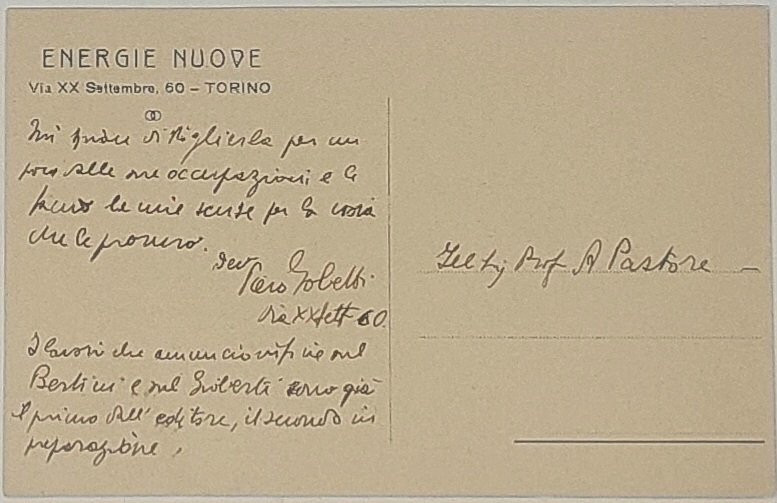 ENERGIE NUOVE
Via XX Settembre, 60 – TORINO
Mi spiace distoglierla per un
poco dalle sue occupazioni e le
faccio le mie scuse per la noia
che le procuro.
Dev
Piero Gobetti
Via XX Sett 60.
I lavori che annunciavo sul
Bertini e sul Gioberti sono già
il primo dall'editore, il secondo in
preparazione.
Prof A Pastore –